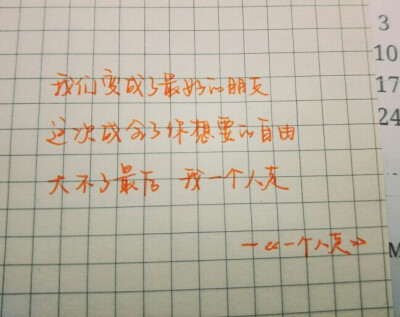 我们变成了最好的朋友
这次成全了你想要的自由
大不了最后 我一个人走
—《一个人走》
3
10
17
24